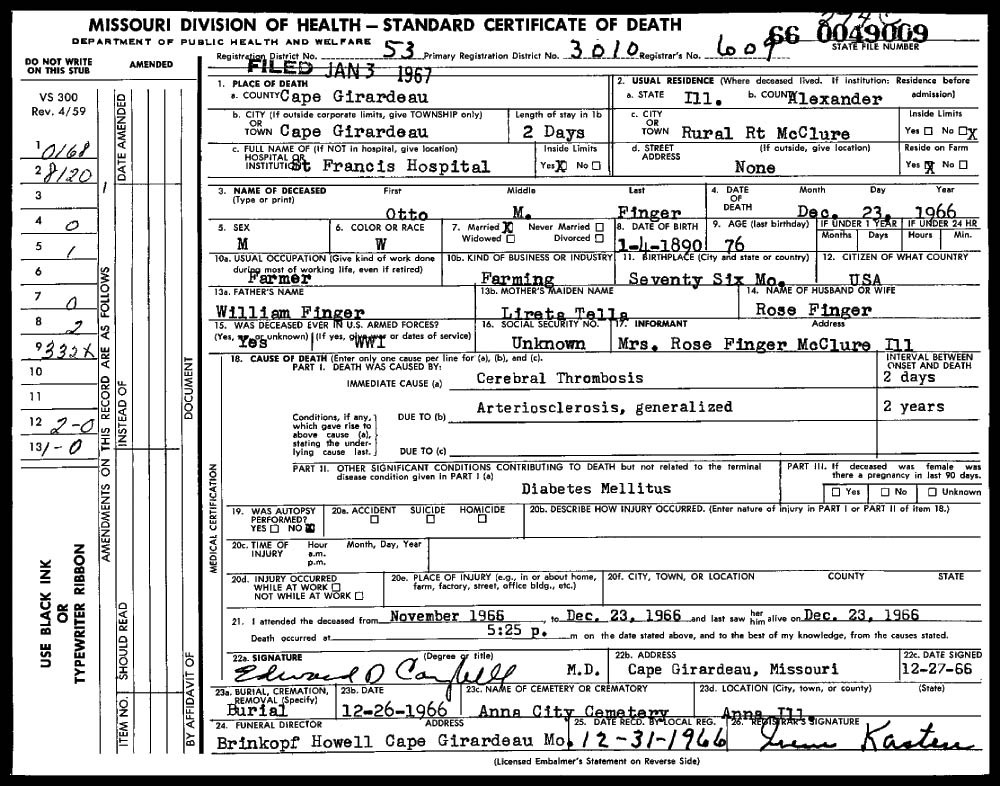 MISSOURI DIVISION OF HEALTH — STANDARD CERTIFICATE OF DEATH
DEPARTMENT OF PUBLIC HEALTH AND WELFARE
66 0049009
STATE FILE NUMBER
Registration District No. 53 Primary Registration District No. 3010 Registrar's No. 609
FILED JAN 3 1967
DO NOT WRITE ON THIS STUB
AMENDED
VS 300
Rev. 4/59
1 0168
2 8120
3
4 0
5 1
6
7 0
8 2
9 332X
10
11
12 2-0
13 1-0
USE BLACK INK
OR
TYPEWRITER RIBBON
AMENDMENTS ON THIS RECORD ARE AS FOLLOWS
DATE AMENDED
INSTEAD OF
SHOULD READ
ITEM NO.
DOCUMENT
BY AFFIDAVIT OF
MEDICAL CERTIFICATION
1. PLACE OF DEATH
a. COUNTY Cape Girardeau
2. USUAL RESIDENCE (Where deceased lived. If institution: Residence before admission)
a. STATE Ill. b. COUNTY Alexander
b. CITY (If outside corporate limits, give TOWNSHIP only)
OR
TOWN Cape Girardeau
Length of stay in 1b
2 Days
c. CITY
OR
TOWN Rural Rt McClure
Inside Limits
Yes ☐ No ☐X
c. FULL NAME OF (If NOT in hospital, give location)
HOSPITAL OR
INSTITUTION St Francis Hospital
Inside Limits
Yes X No ☐
d. STREET ADDRESS
(If outside, give location)
None
Reside on Farm
Yes X No ☐
3. NAME OF DECEASED
(Type or print)
First Middle Last
Otto M. Finger
4. DATE OF DEATH
Month Day Year
Dec. 23, 1966
5. SEX
M
6. COLOR OR RACE
W
7. Married X Never Married ☐
Widowed ☐ Divorced ☐
8. DATE OF BIRTH
1-4-1890
9. AGE (last birthday)
76
IF UNDER 1 YEAR
Months Days
IF UNDER 24 HR
Hours Min.
10a. USUAL OCCUPATION (Give kind of work done
during most of working life, even if retired)
Farmer
10b. KIND OF BUSINESS OR INDUSTRY
Farming
11. BIRTHPLACE (City and state or country)
Seventy Six Mo.
12. CITIZEN OF WHAT COUNTRY
USA
13a. FATHER'S NAME
William Finger
13b. MOTHER'S MAIDEN NAME
Lireta Tella
14. NAME OF HUSBAND OR WIFE
Rose Finger
15. WAS DECEASED EVER IN U.S. ARMED FORCES?
(Yes, no, or unknown) (If yes, give war or dates of service)
Yes WWI
16. SOCIAL SECURITY NO.
Unknown
17. INFORMANT Address
Mrs. Rose Finger McClure Ill
18. CAUSE OF DEATH (Enter only one cause per line for (a), (b), and (c).
PART I. DEATH WAS CAUSED BY:
INTERVAL BETWEEN
ONSET AND DEATH
IMMEDIATE CAUSE (a) Cerebral Thrombosis
2 days
Conditions, if any,
which gave rise to
above cause (a),
stating the under-
lying cause last.
DUE TO (b) Arteriosclerosis, generalized
2 years
DUE TO (c)
PART II. OTHER SIGNIFICANT CONDITIONS CONTRIBUTING TO DEATH but not related to the terminal
disease condition given in PART I (a)
Diabetes Mellitus
PART III. If deceased was female was
there a pregnancy in last 90 days.
☐ Yes ☐ No ☐ Unknown
19. WAS AUTOPSY
PERFORMED?
YES ☐ NO X
20a. ACCIDENT SUICIDE HOMICIDE
☐ ☐ ☐
20b. DESCRIBE HOW INJURY OCCURRED. (Enter nature of injury in PART I or PART II of item 18.)
20c. TIME OF INJURY
Hour
a.m.
p.m.
Month, Day, Year
20d. INJURY OCCURRED
WHILE AT WORK ☐
NOT WHILE AT WORK ☐
20e. PLACE OF INJURY (e.g., in or about home,
farm, factory, street, office bldg., etc.)
20f. CITY, TOWN, OR LOCATION COUNTY STATE
21. I attended the deceased from November 1966, to Dec. 23, 1966 and last saw her him alive on Dec. 23, 1966
Death occurred at 5:25 p. m on the date stated above, and to the best of my knowledge, from the causes stated.
22a. SIGNATURE (Degree or title)
Edward D Campbell M.D.
22b. ADDRESS
Cape Girardeau, Missouri
22c. DATE SIGNED
12-27-66
23a. BURIAL, CREMATION,
REMOVAL (Specify)
Burial
23b. DATE
12-26-1966
23c. NAME OF CEMETERY OR CREMATORY
Anna City Cemetery
23d. LOCATION (City, town, or county) (State)
Anna Ill
24. FUNERAL DIRECTOR ADDRESS
Brinkopf Howell Cape Girardeau Mo.
25. DATE RECD. BY LOCAL REG.
12-31-1966
26. REGISTRAR'S SIGNATURE
Irene Kasten
(Licensed Embalmer's Statement on Reverse Side)